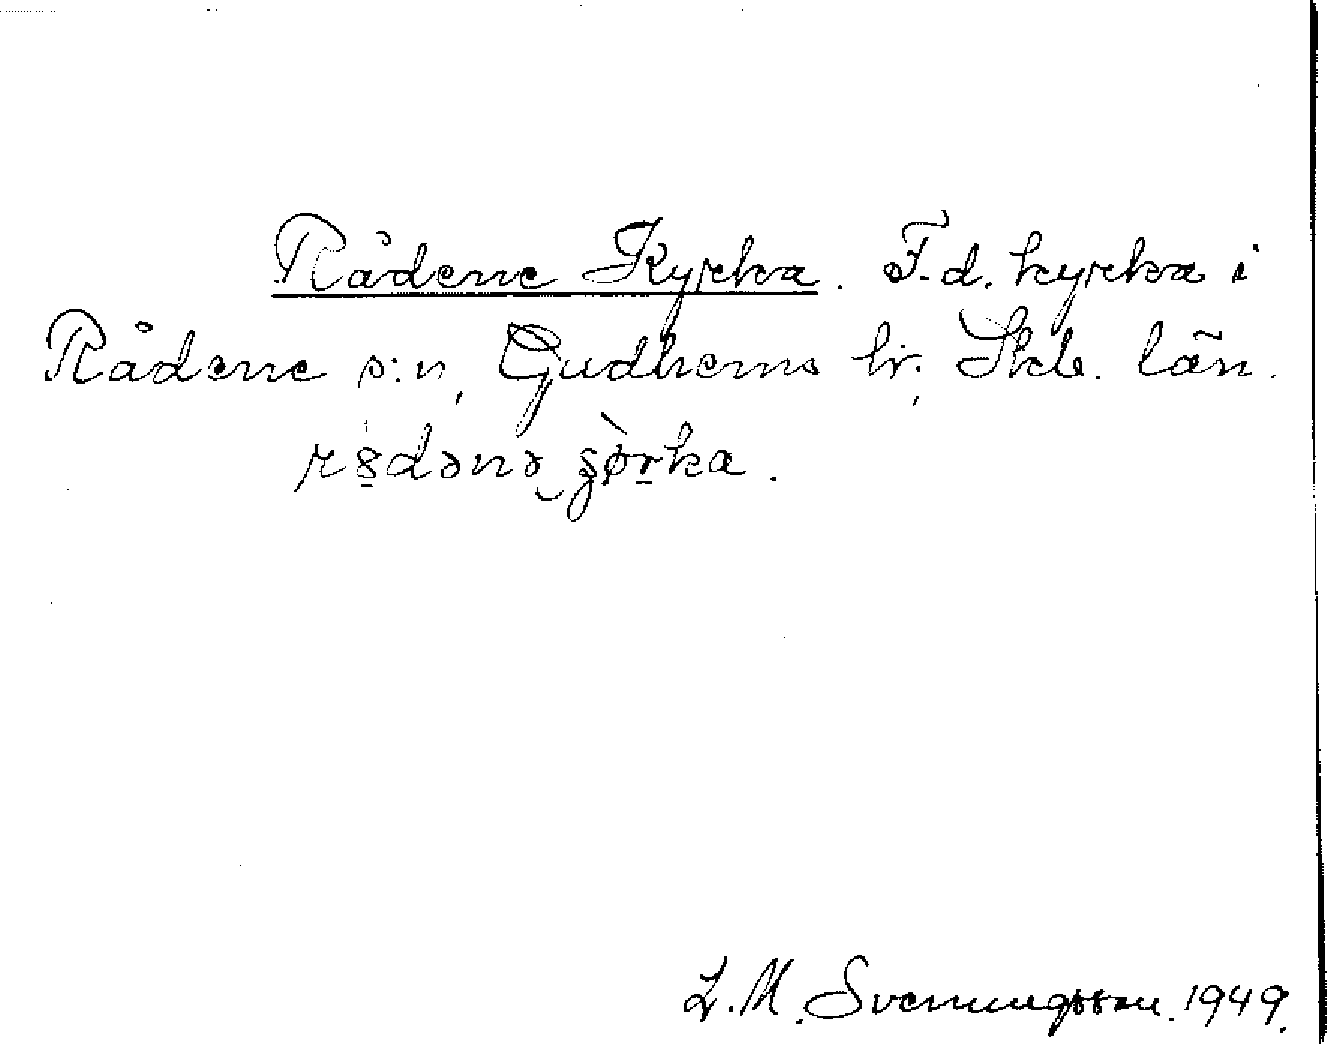 Rådene Kyrka. F.d. kyrka i
Rådene s:n, Gudhems hr., Skb. län.
L. M. Svenungsson. 1949.